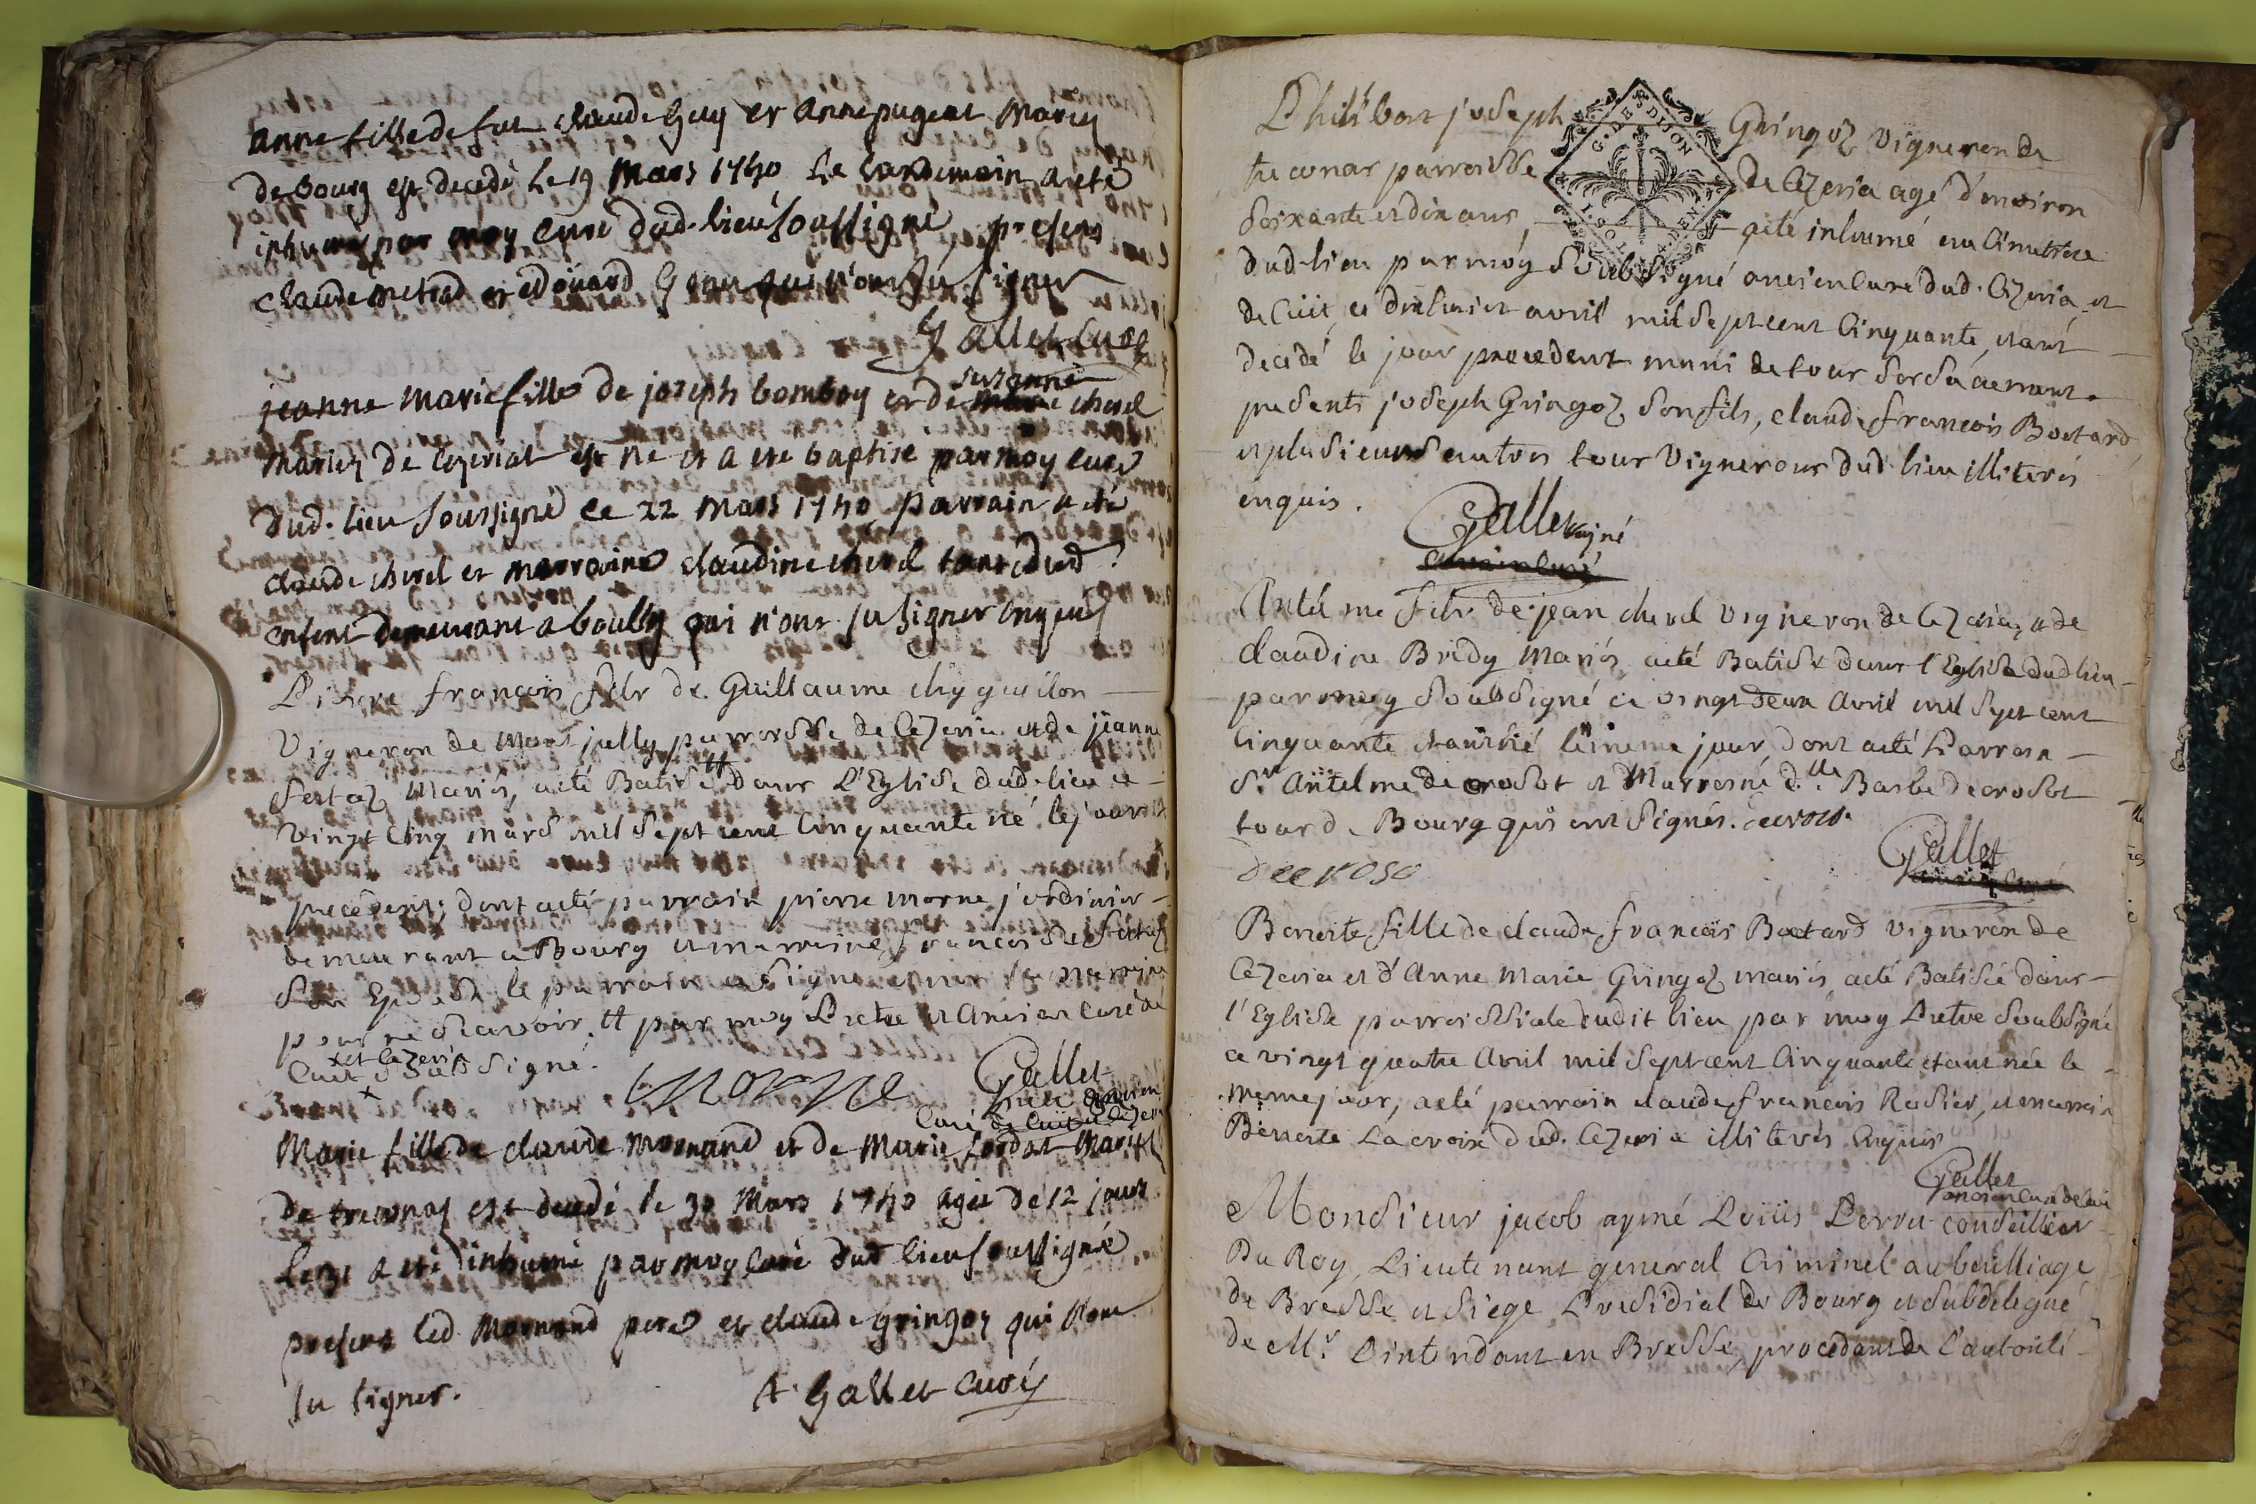 anne fille de fut claude Guy et anne pugeat Mariez
de bourg est decedé le 19 Mars 1750 Le Landemain a eté
inhumé par moy curé dud. lieu soussigné presens
claude et edoüard qui n'ont sçu signer
Gallet Curé
suzanne
jeanne Marie fille de joseph bomboy et de Marie cherel
Mariez de Cezeriat est né et a eté baptisé par moy curé
dud. lieu soussigné ce 22 Mars 1750 parrain a eté
claude cherel et marraine claudine cherel tant dud.
enfent demeurant a qui n'ont su signer enquis
Pierre francois fils de Guillaume chygneilon
Vigneron de Mont july parroisse de Cezeria et de jeanne
Mariés, a eté Batisé # dans L'Eglise dud. lieu ce
vingt cinq mars mil sept cent cinquante né le jour
precedent, dont a eté parrain pierre morne jardinier
demeurant a Bourg et marraine francoise
son Epouse le parrain a signé et non la marraine
pour ne scavoir. # par moy Pretre et Ancien curé de
x et Cezeria
Cuet x soubsigné.
morne Gallet
Pretre ancien
curé de Cuet et de Cezeria
Marie fille de claude Mornand et de Marie fordat Mariez
de treconas est decedé le 30 Mars 1750 agée de 12 jours
le 31 a eté inhumé par moy Curé dud lieu soussigné
presens led Mornand pere et claude gringoz qui n'ont
su signer. A Gallet Curé
Philibert joseph Gringoz vigneron de
treconas parroisse de Cezeria agé d'environ
G. DES DIJON
soixante et dix ans, a eté inhumé au cimetiere
dud. lieu par moy soubsigné ancien curé dud. Cezeria et
de Cuit, ce dix huit avril mil sept cent cinquante, etant
decedé le jour precedent muni de tous ses sacremens
presents joseph Gringoz son fils, claude francois Boetard
et plusieurs autres tous vignerons dud. lieu illiterés
enquis.
Gallet ainé
ancien curé
Antelme fils de jean cherel vigneron de Cezeria, et de
claudine Bridy Mariés, a eté Batisé dans l'Eglise dud lieu
par moy soubsigné ce vingt deux Avril mil sept cent
cinquante etant né le meme jour, dont a eté Parrain
Sr. Antelme de crosot et Marraine dlle Barbe de crosot
tous de Bourg qui ont signés.
Decroso
Gallet
ancien curé
Benoite fille de claude francois Boetard vigneron de
Cezeria et d'Anne Marie Gringoz mariés, a eté Batisée dans
l'Eglise parroissiale dudit lieu par moy Pretre soubsigné
ce vingt quatre Avril mil sept cent cinquante etant née le
meme jour, a eté parrain claude francois Rodier, et marraine
Benoite Lacroix dud. Cezeria illiterés enquis
Gallet
ancien curé de Cuit
Monsieur jacob aymé Loüis Perru conseiller
Du Roy, Lieutenant general Criminel au bailliage
de Bresse et siege Presidial de Bourg et subdelegué
de Mr. L'intendant en Bresse, procedant de l'autorité